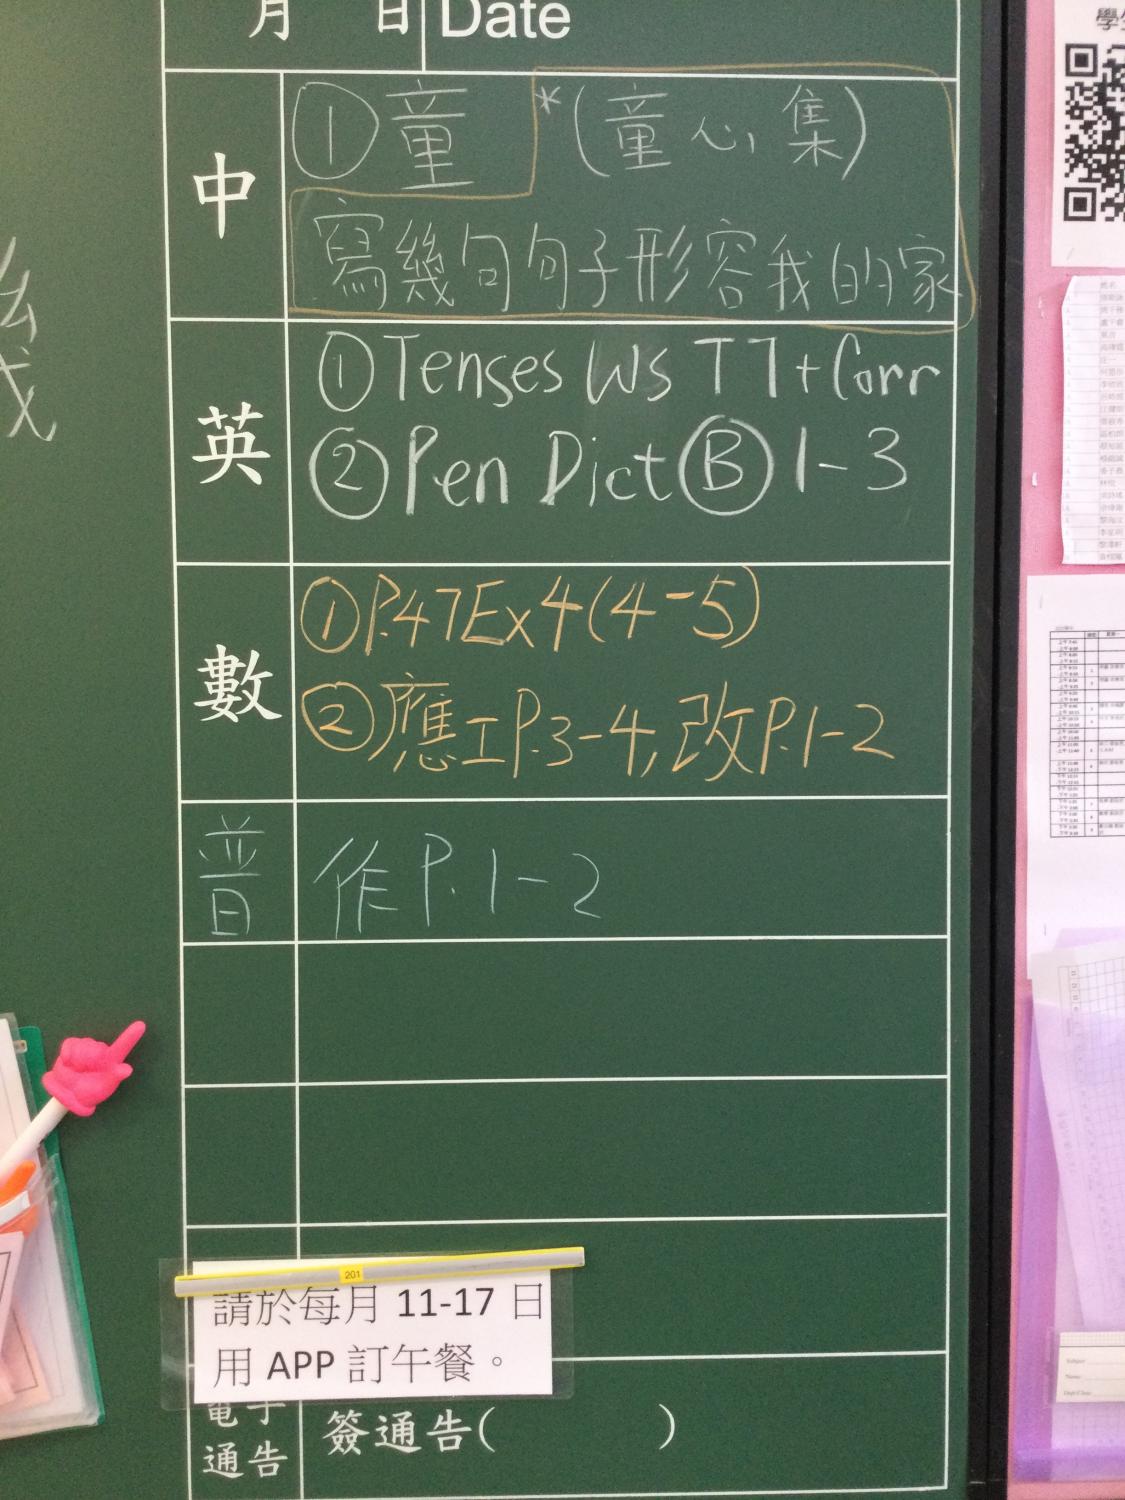 月 日 Date
中
①童 *(童心集)
寫幾句句子形容我的家
英
①Tenses WS T7+Corr
②Pen Dict Ⓑ 1-3
數
①P.47Ex4(4-5)
②應工P.3-4,改P.1-2
普
作P.1-2
201
請於每月 11-17 日
用 APP 訂午餐。
電子
通告
簽通告( )
幾